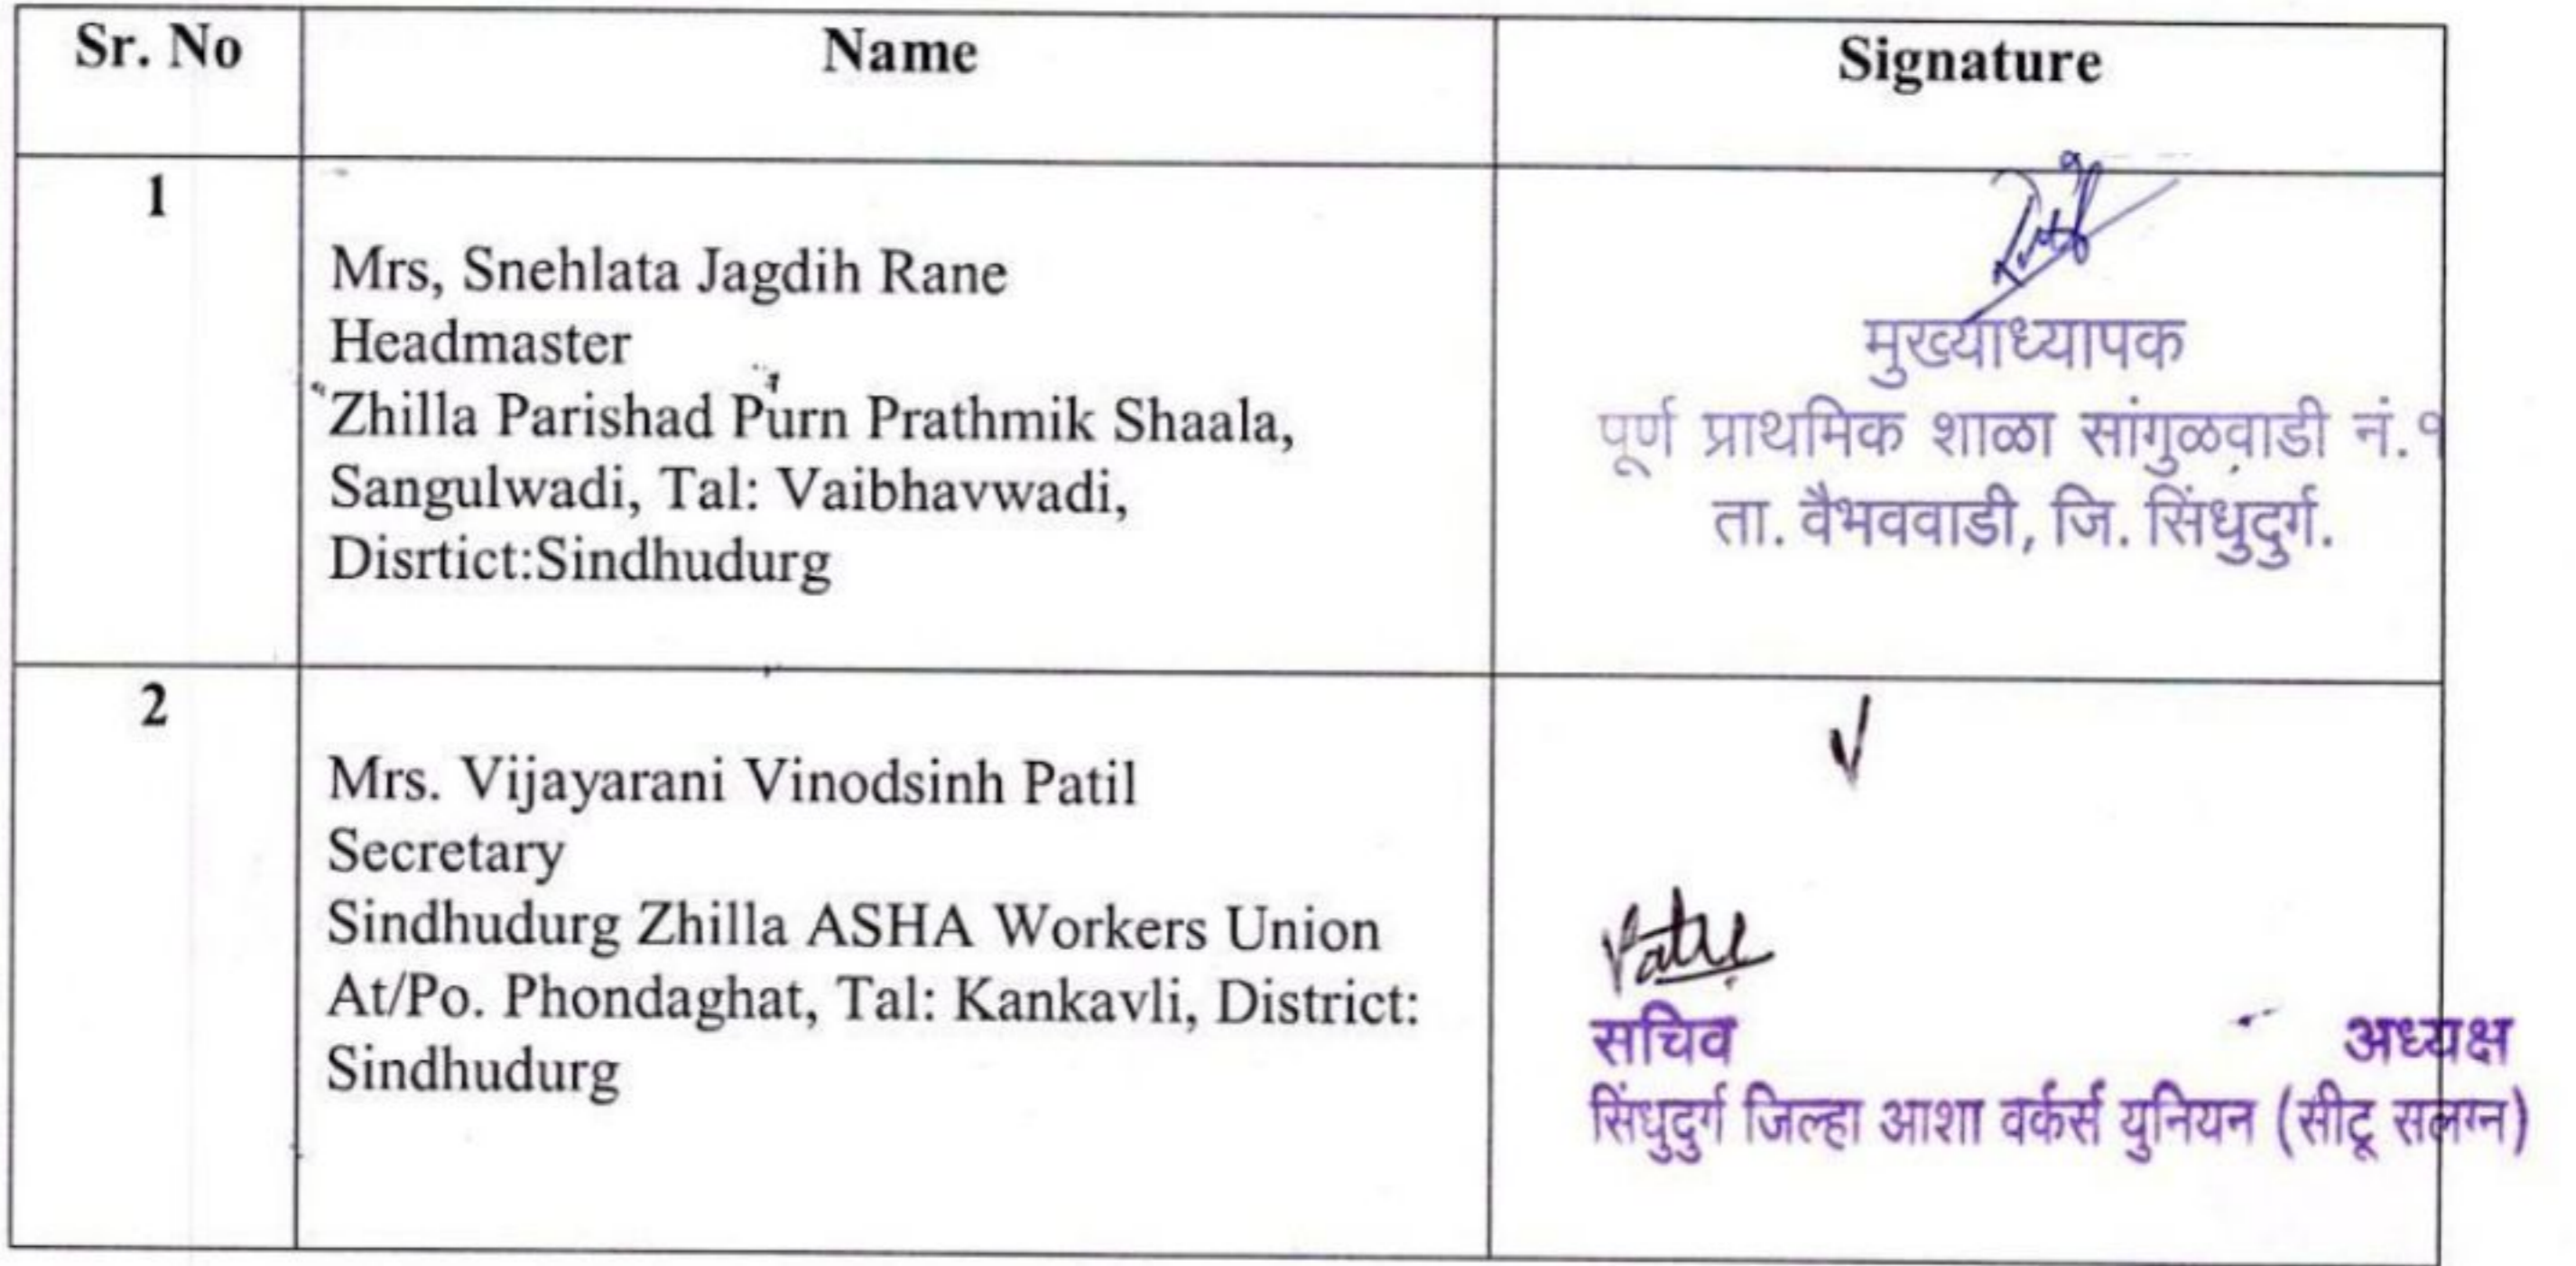 Sr. No
Name
Signature
1
Mrs, Snehlata Jagdih Rane
Headmaster
Zhilla Parishad Purn Prathmik Shaala,
Sangulwadi, Tal: Vaibhavwadi,
Disrtict:Sindhudurg
मुख्याध्यापक
पूर्ण प्राथमिक शाळा सांगुळवाडी नं.१
ता. वैभववाडी, जि. सिंधुदुर्ग.
2
Mrs. Vijayarani Vinodsinh Patil
Secretary
Sindhudurg Zhilla ASHA Workers Union
At/Po. Phondaghat, Tal: Kankavli, District:
Sindhudurg
सचिव
अध्यक्ष
सिंधुदुर्ग जिल्हा आशा वर्कर्स युनियन (सीटू सलग्न)